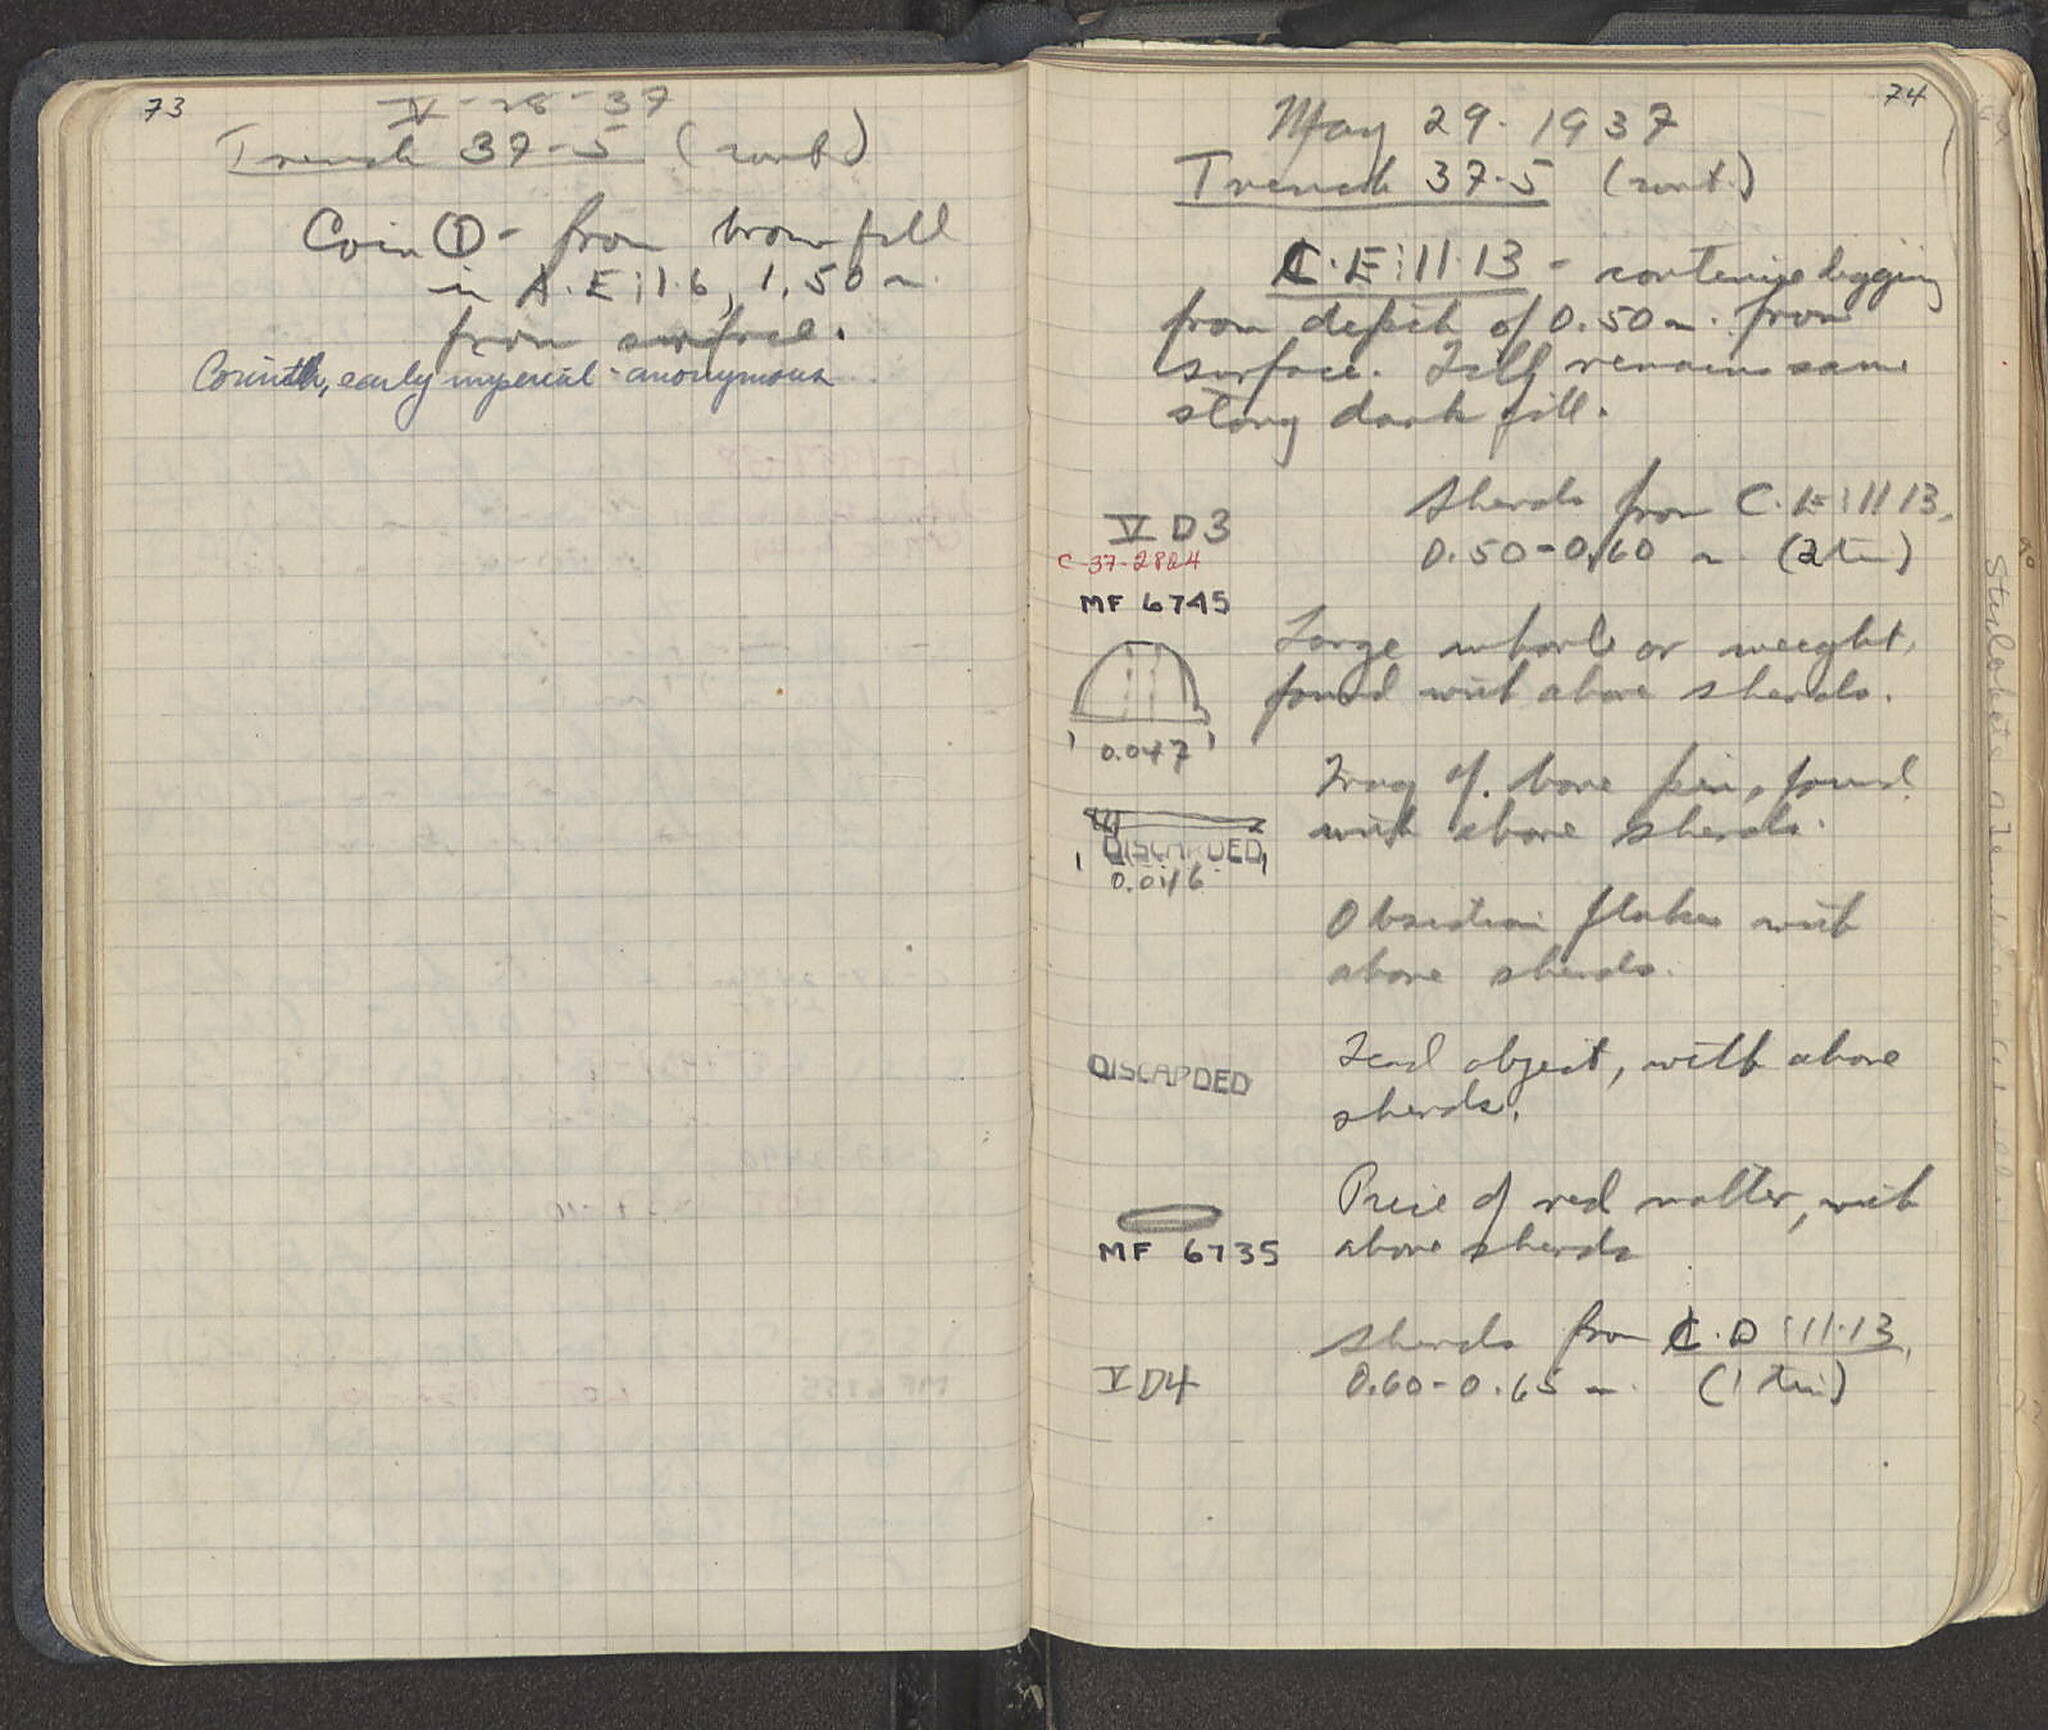 73
V-28-37
Trench 37-5 (cont.)
Coin ① - from brown fill
in A.E:1.6, 1.50 m.
from surface.
Corinth, early imperial - anonymous
74
May 29. 1937
Trench 37-5 (cont.)
C.E:11.13 - continue digging
from depth of 0.50 m. from
surface. Fill remains same
stony dark fill.
V D3
C-37-2824
MF 6745
Sherds from C.E:11.13,
0.50-0.60 m. (2 tin)
Large whorl or weight,
found with above sherds.
0.047
Frag of. bone pin, found
with above sherds.
DISCARDED
0.046
Obsidian flakes with
above sherds.
DISCARDED
Lead object, with above
sherds.
Piece of red matter, with
above sherds
MF 6735
Sherds from C.D:11.13,
V D4
0.60-0.65 m. (1 tin)